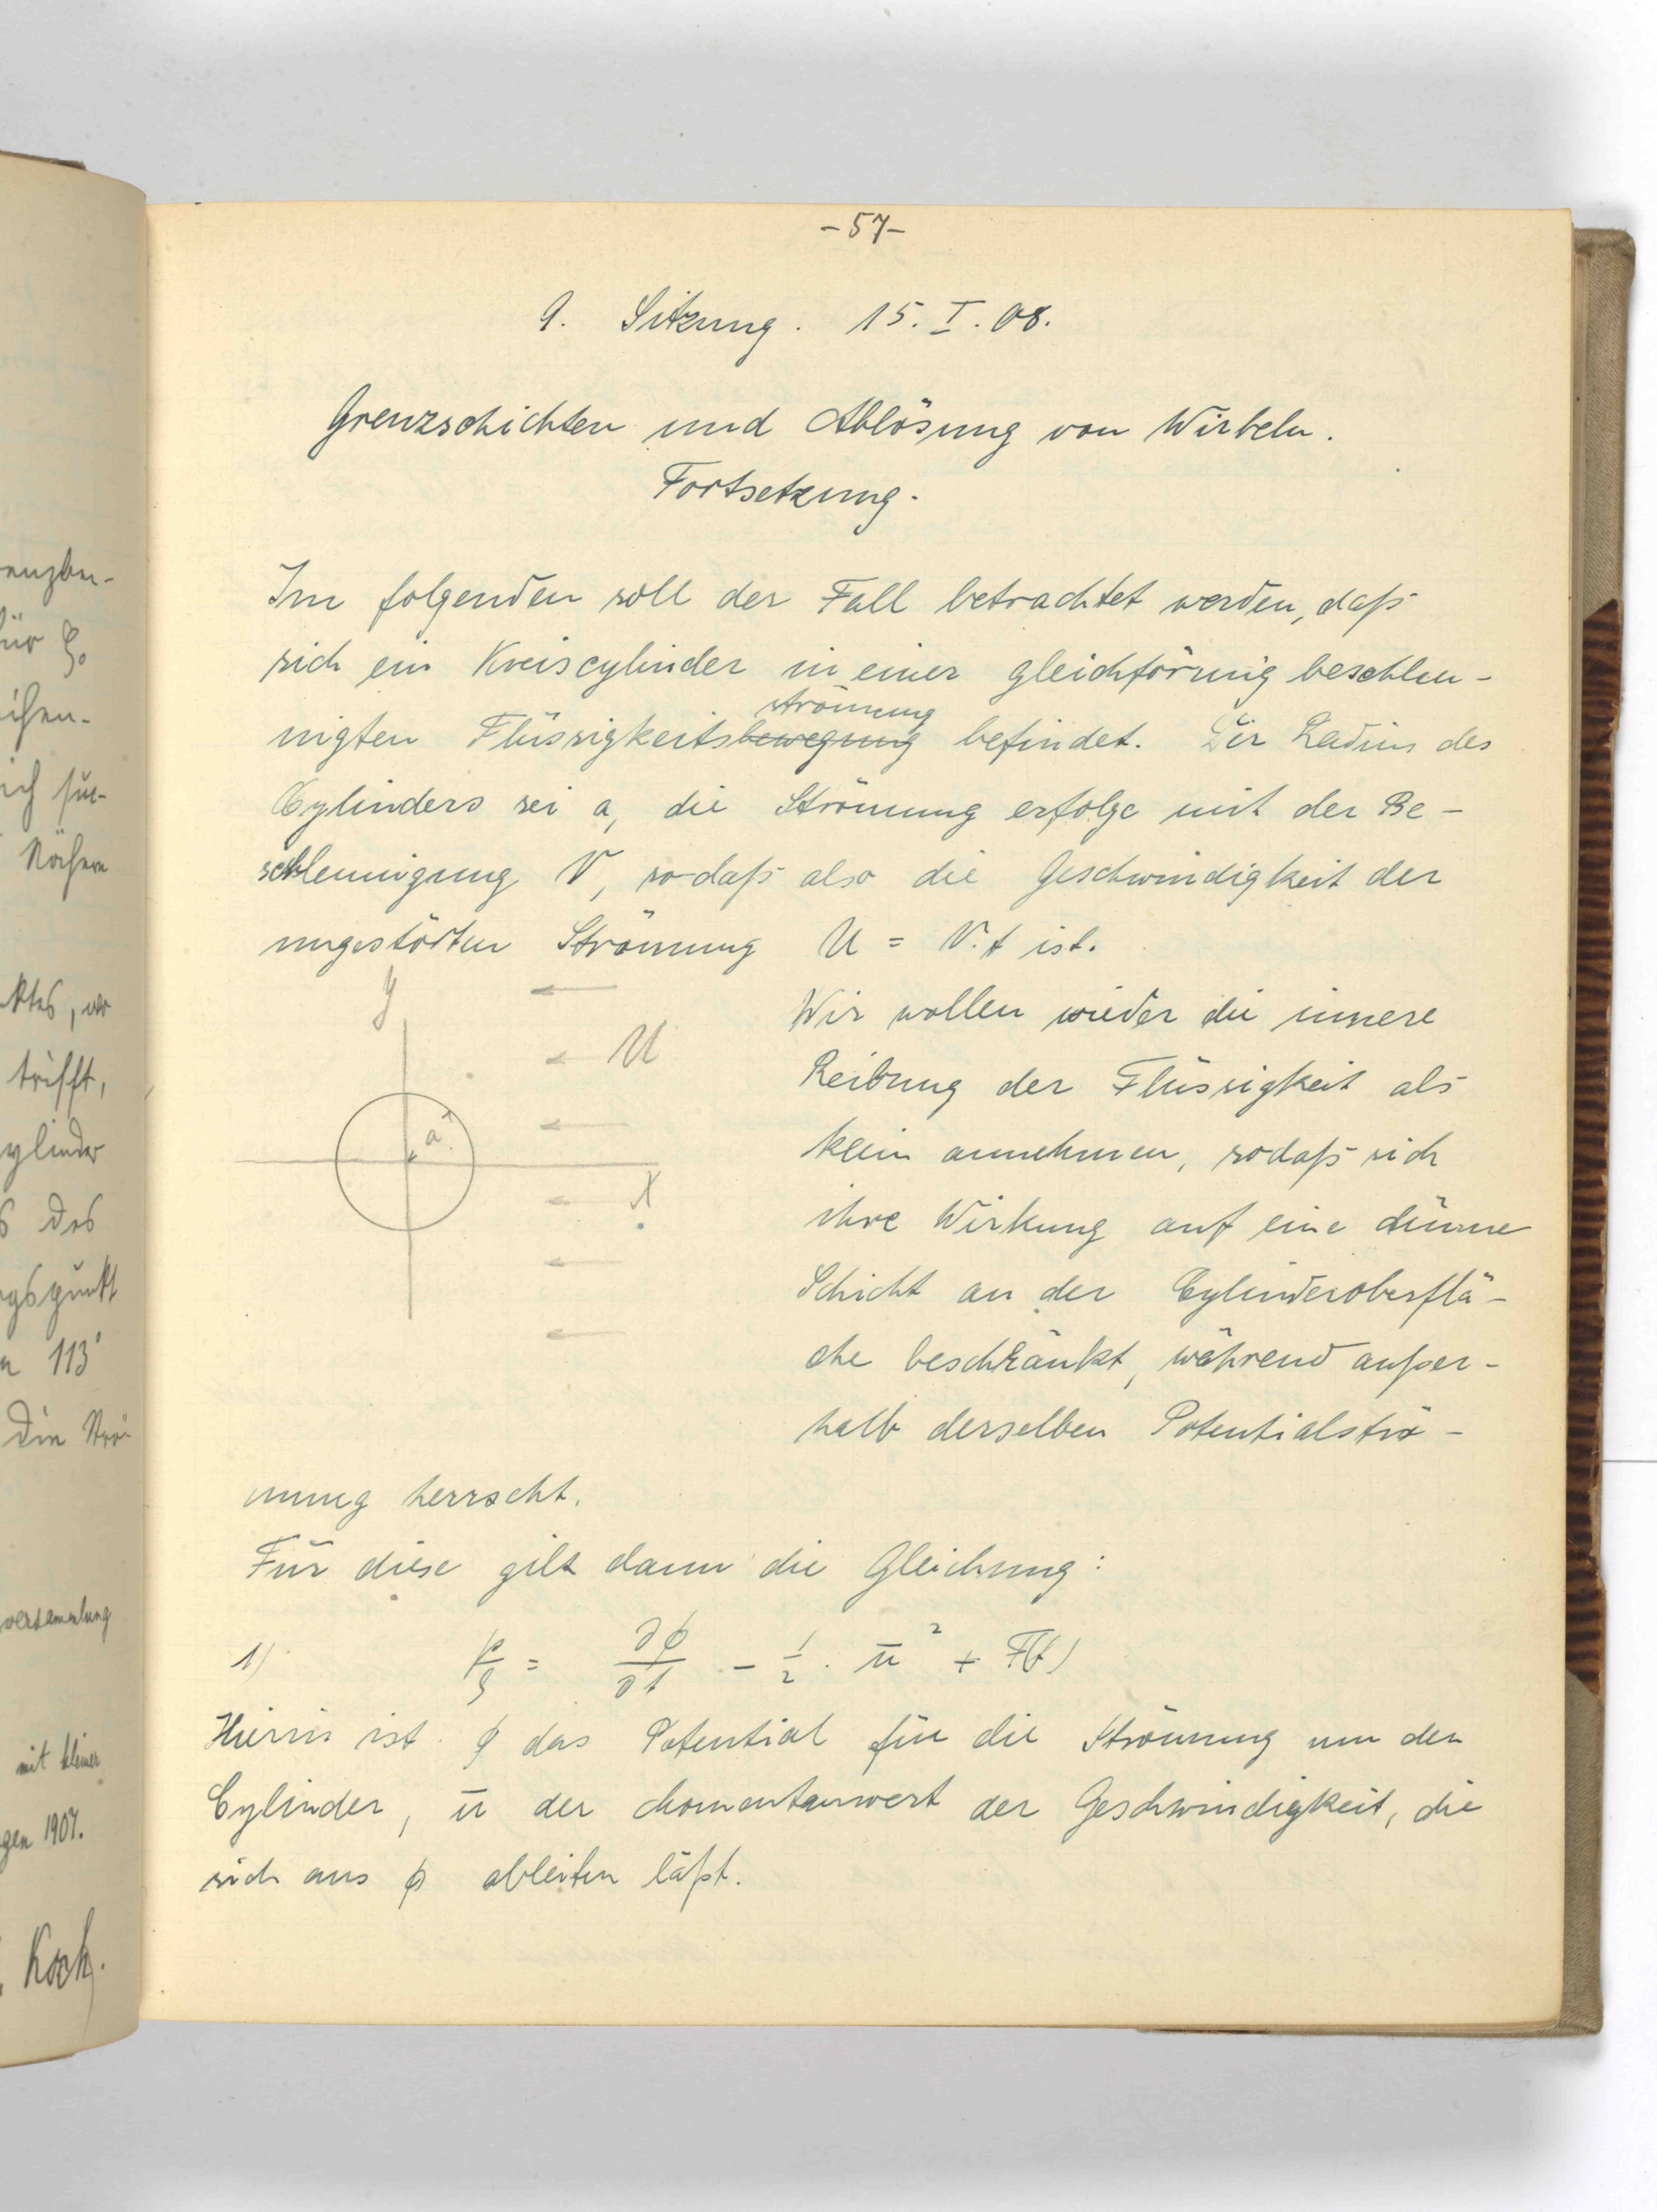 -57-
9. Sitzung. 15. I. 08.
Grenzschichten und Ablösung von Wirbeln.
Fortsetzung.
Im folgenden soll der Fall betrachtet werden, daß
sich ein Kreiscylinder in einer gleichförmig beschleu-
strömung
nigten Flüssigkeitsbewegung befindet. Der Radius des
Cylinders sei a, die Strömung erfolge mit der Be-
schleunigung V, sodaß also die Geschwindigkeit der
ungestörten Strömung U = V.t ist.
y
U
a
X
Wir wollen wieder die innere
Reibung der Flüssigkeit als
klein annehmen, sodaß sich
ihre Wirkung auf eine dünne
Schicht an der Cylinderoberflä-
che beschränkt, während außer-
halb derselben Potentialströ-
mung herrscht.
Für diese gilt dann die Gleichung:
1) p/ϱ = ∂ϕ/∂t - 1/2 . ū² + F(t)
Hierin ist ϕ das Potential für die Strömung um den
Cylinder, ū der Momentanwert der Geschwindigkeit, die
sich aus ϕ ableiten läßt.
enzbe-
für ξ₀
ich
Nähere
ktes, wo
trifft,
ylinder
s des
gspunkt
n 113°
Die Strö-
versammlung
mit kleiner
gen 1907.
Koch.